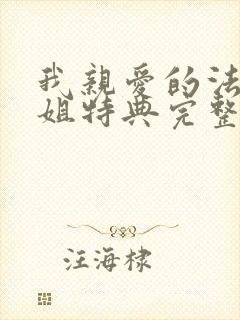 我親愛的法
姐特典完整
汪海棣